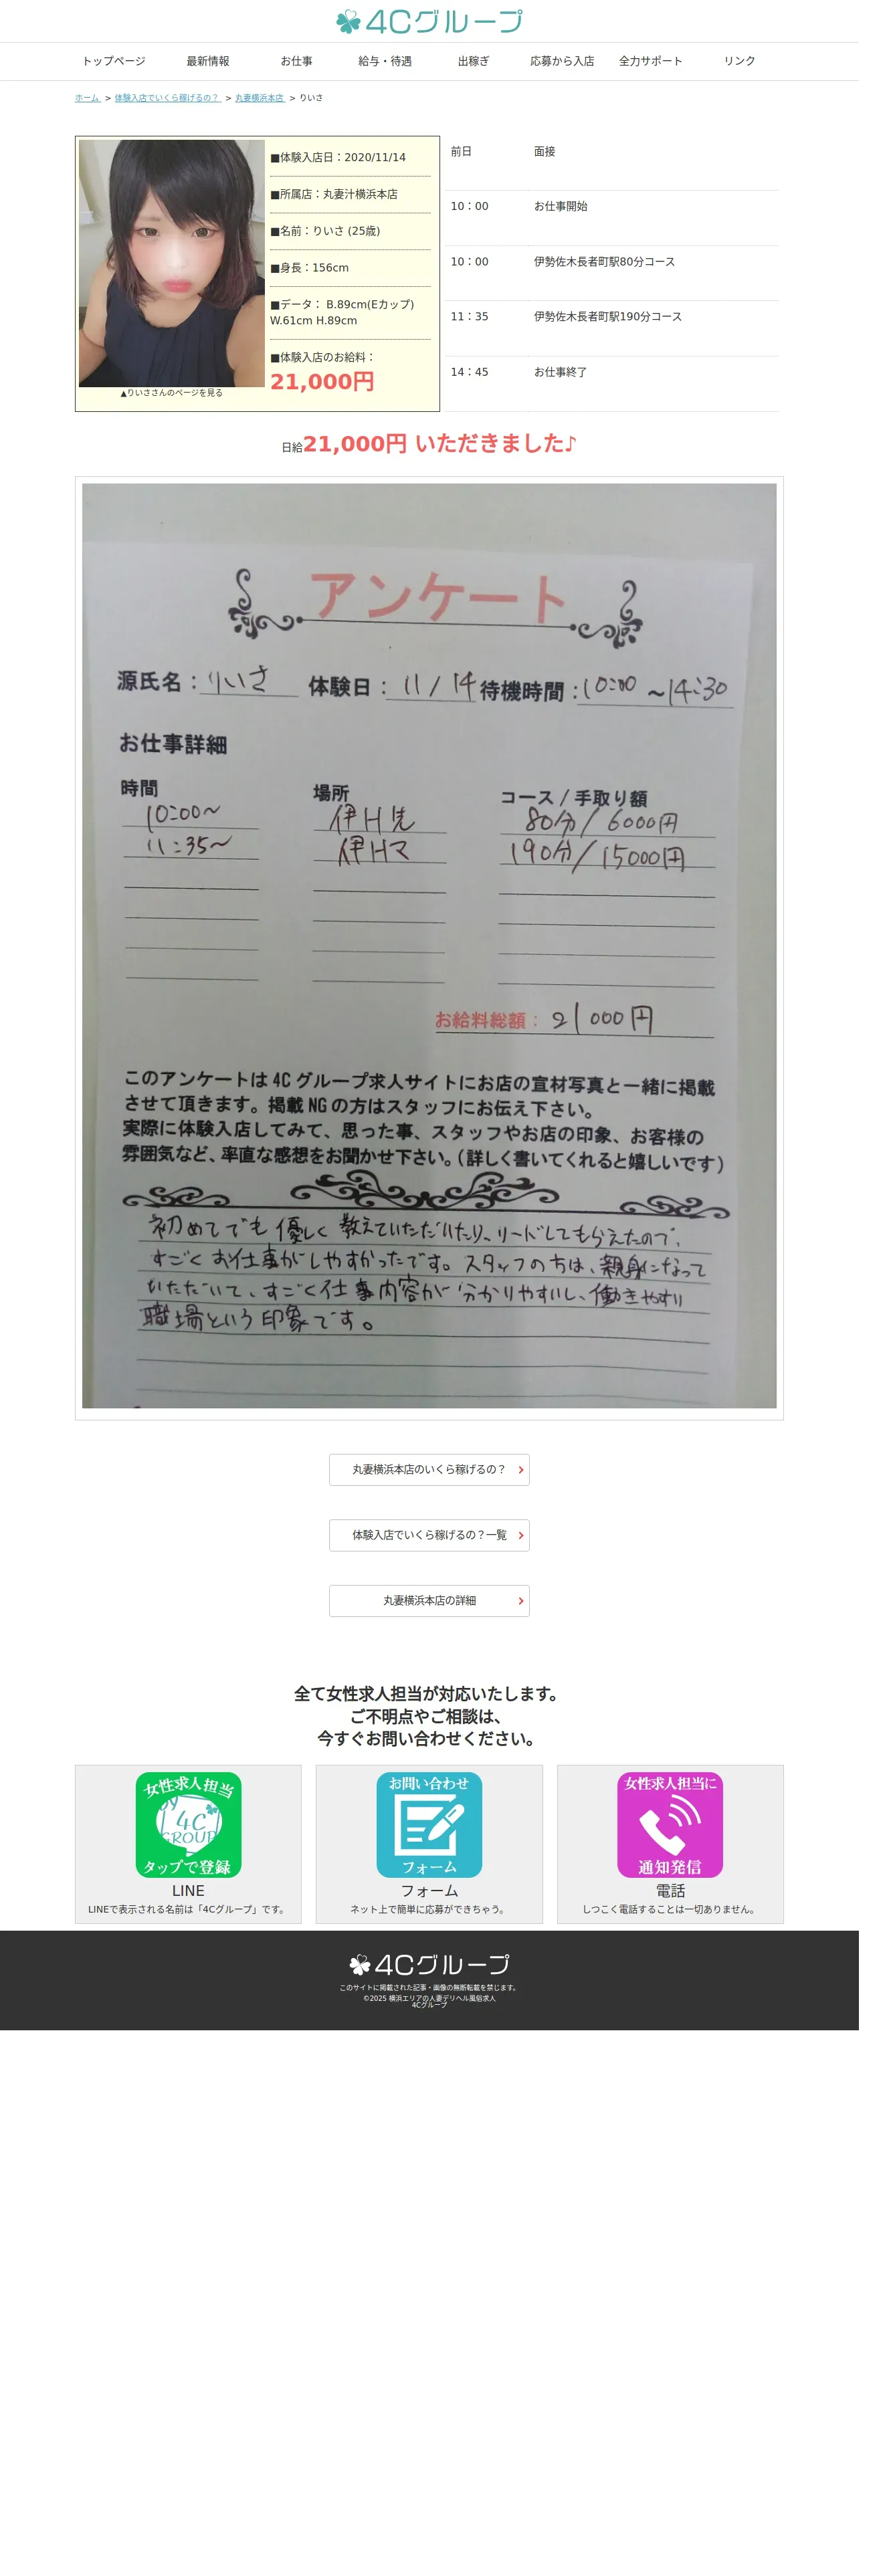 4Cグループ
トップページ 最新情報 お仕事 給与・待遇 出稼ぎ 応募から入店 全力サポート リンク
ホーム > 体験入店でいくら稼げるの? > 丸妻横浜本店 > りいさ
■体験入店日:2020/11/14
■所属店:丸妻汁横浜本店
■名前:りいさ (25歳)
■身長:156cm
■データ: B.89cm(Eカップ)
W.61cm H.89cm
■体験入店のお給料:
21,000円
▲りいささんのページを見る
前日 面接
10:00 お仕事開始
10:00 伊勢佐木長者町駅80分コース
11:35 伊勢佐木長者町駅190分コース
14:45 お仕事終了
日給21,000円 いただきました♪
アンケート
源氏名:りいさ 体験日:11/14 待機時間:10:00 ~14:30
お仕事詳細
時間 場所 コース/手取り額
10:00~ 伊H先 80分/6000円
11:35~ 伊Hマ 190分/15000円
お給料総額: 21000円
このアンケートは4Cグループ求人サイトにお店の宣材写真と一緒に掲載
させて頂きます。掲載NGの方はスタッフにお伝え下さい。
実際に体験入店してみて、思った事、スタッフやお店の印象、お客様の
雰囲気など、率直な感想をお聞かせ下さい。(詳しく書いてくれると嬉しいです)
初めてでも優しく教えていただいたり、リードしてもらえたので、
すごくお仕事がしやすかったです。スタッフの方は、親身になって
いただいて、すごく仕事内容が分かりやすいし、働きやすい
職場という印象です。
丸妻横浜本店のいくら稼げるの?
体験入店でいくら稼げるの?一覧
丸妻横浜本店の詳細
全て女性求人担当が対応いたします。
ご不明点やご相談は、
今すぐお問い合わせください。
女性求人担当
4C
GROUP
タップで登録
LINE
LINEで表示される名前は「4Cグループ」です。
お問い合わせ
フォーム
フォーム
ネット上で簡単に応募ができちゃう。
女性求人担当に
通知発信
電話
しつこく電話することは一切ありません。
4Cグループ
このサイトに掲載された記事・画像の無断転載を禁じます。
©2025 横浜エリアの人妻デリヘル風俗求人
4Cグループ